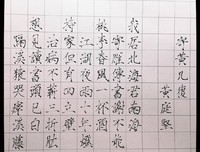 寄黄几復
黄庭堅
我居北海君南海
寄雁傳書謝不能
桃李春風一杯酒
江湖夜雨十年燈
持家但有四立壁
治病不蘄三折肱
想見讀書頭已白
隔溪猿哭瘴溪藤